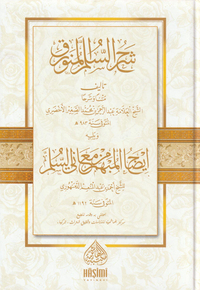 شرح السلم المنورق
تأليف
متنا وشرحا
للشيخ العلامة عبد الرحمن بن محمد الصغير الأخضري
المتوفى سنة ٩٨٣ هـ
ويليه
إيضاح المبهم من معاني السلم
للشيخ أحمد بن عبد المنعم الدمنهوري
المتوفى سنة ١١٩٢ هـ
HAŞİMİ